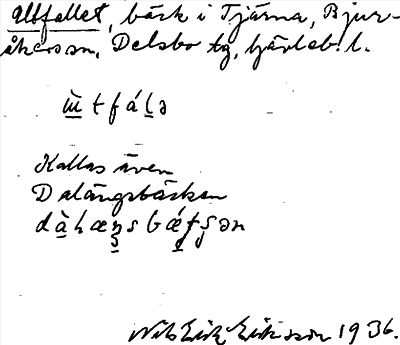 Utfallet, bäck i Tjärna, Bjur-
åkers sn, Delsbo tg, Gävleb. l.
ù̱tfáḻə
Kallas även
Dalängsbäcken
Nils Erik Eriksson 1936.